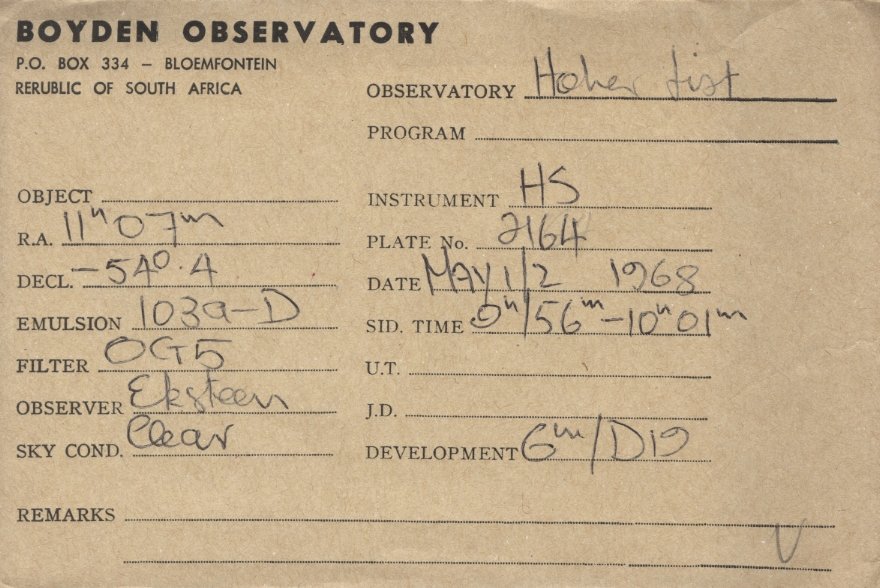 BOYDEN OBSERVATORY
P.O. BOX 334 – BLOEMFONTEIN
RERUBLIC OF SOUTH AFRICA
OBSERVATORY Hoher List
PROGRAM
OBJECT
INSTRUMENT HS
R.A. 11h 07m
PLATE No. 2164
DECL. -54°.4
DATE MAY 1/2 1968
EMULSION 103a-D
SID. TIME 9h/56m-10h01m
FILTER OG5
U.T.
OBSERVER Eksteen
J.D.
SKY COND. Clear
DEVELOPMENT 6m/D19
REMARKS
V